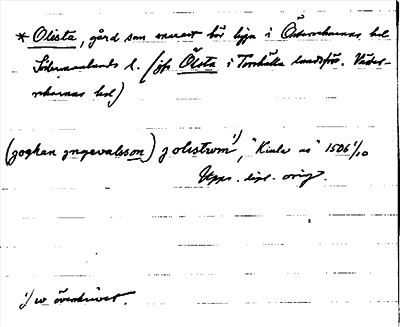 * Olista, gård som snarast bör ligga i Österrekarnas hd
Södermanlands l. (jfr Ölsta i Torshälla landsförs. Väster-
rekarnas hd)
(joghan yngevalsson) j olistom 1), "Kiula as" 1506 1/10
Upps. dipl. orig.
1) o överskrivet.